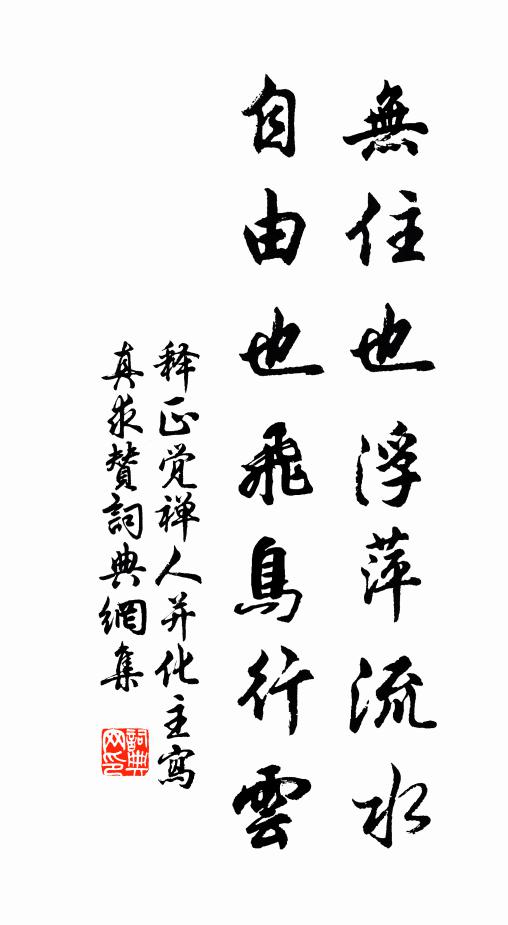 無住也浮萍流水
自由也飛鳥行雲
释正觉禅人并化主寫
真求贊詞典網集
詞典网印